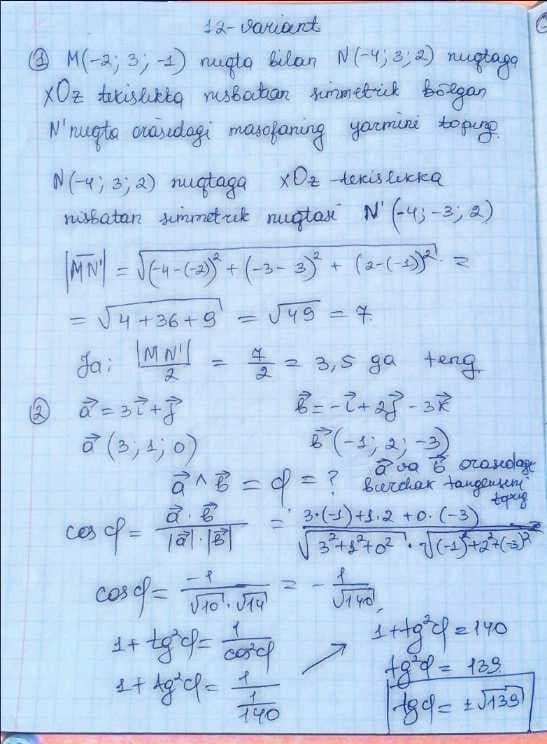 12-variant
① M(-2; 3; -1) nuqta bilan N(-4; 3; 2) nuqtaga
xOz tekislikka nisbatan simmetrik bo'lgan
N' nuqta orasidagi masofaning yarmini toping.
N(-4; 3; 2) nuqtaga xOz tekislikka
nisbatan simmetrik nuqtasi N'(-4; -3; 2)
|MN'| = √((-4-(-2))² + (-3-3)² + (2-(-1))²) =
= √(4+36+9) = √49 = 7.
Ja: |MN'|/2 = 7/2 = 3,5 ga teng
② a⃗ = 3i⃗ + j⃗ b⃗ = -i⃗ + 2j⃗ - 3k⃗
a⃗ (3; 1; 0) b⃗ (-1; 2; -3)
a⃗ ^ b⃗ = φ = ? a⃗ va b⃗ orasidagi
burchak tangensini
toping
cos φ = (a⃗ · b⃗)/(|a⃗| · |b⃗|) = (3·(-1)+1·2+0·(-3))/(√(3²+1²+0²) · √((-1)²+2²+(-3)²))
cos φ = -1/(√10 · √14) = -1/√140,
1+tg²φ = 1/cos²φ
1+tg²φ = 1/(1/140)
→ 1+tg²φ = 140
tg²φ = 139
tgφ = ±√139